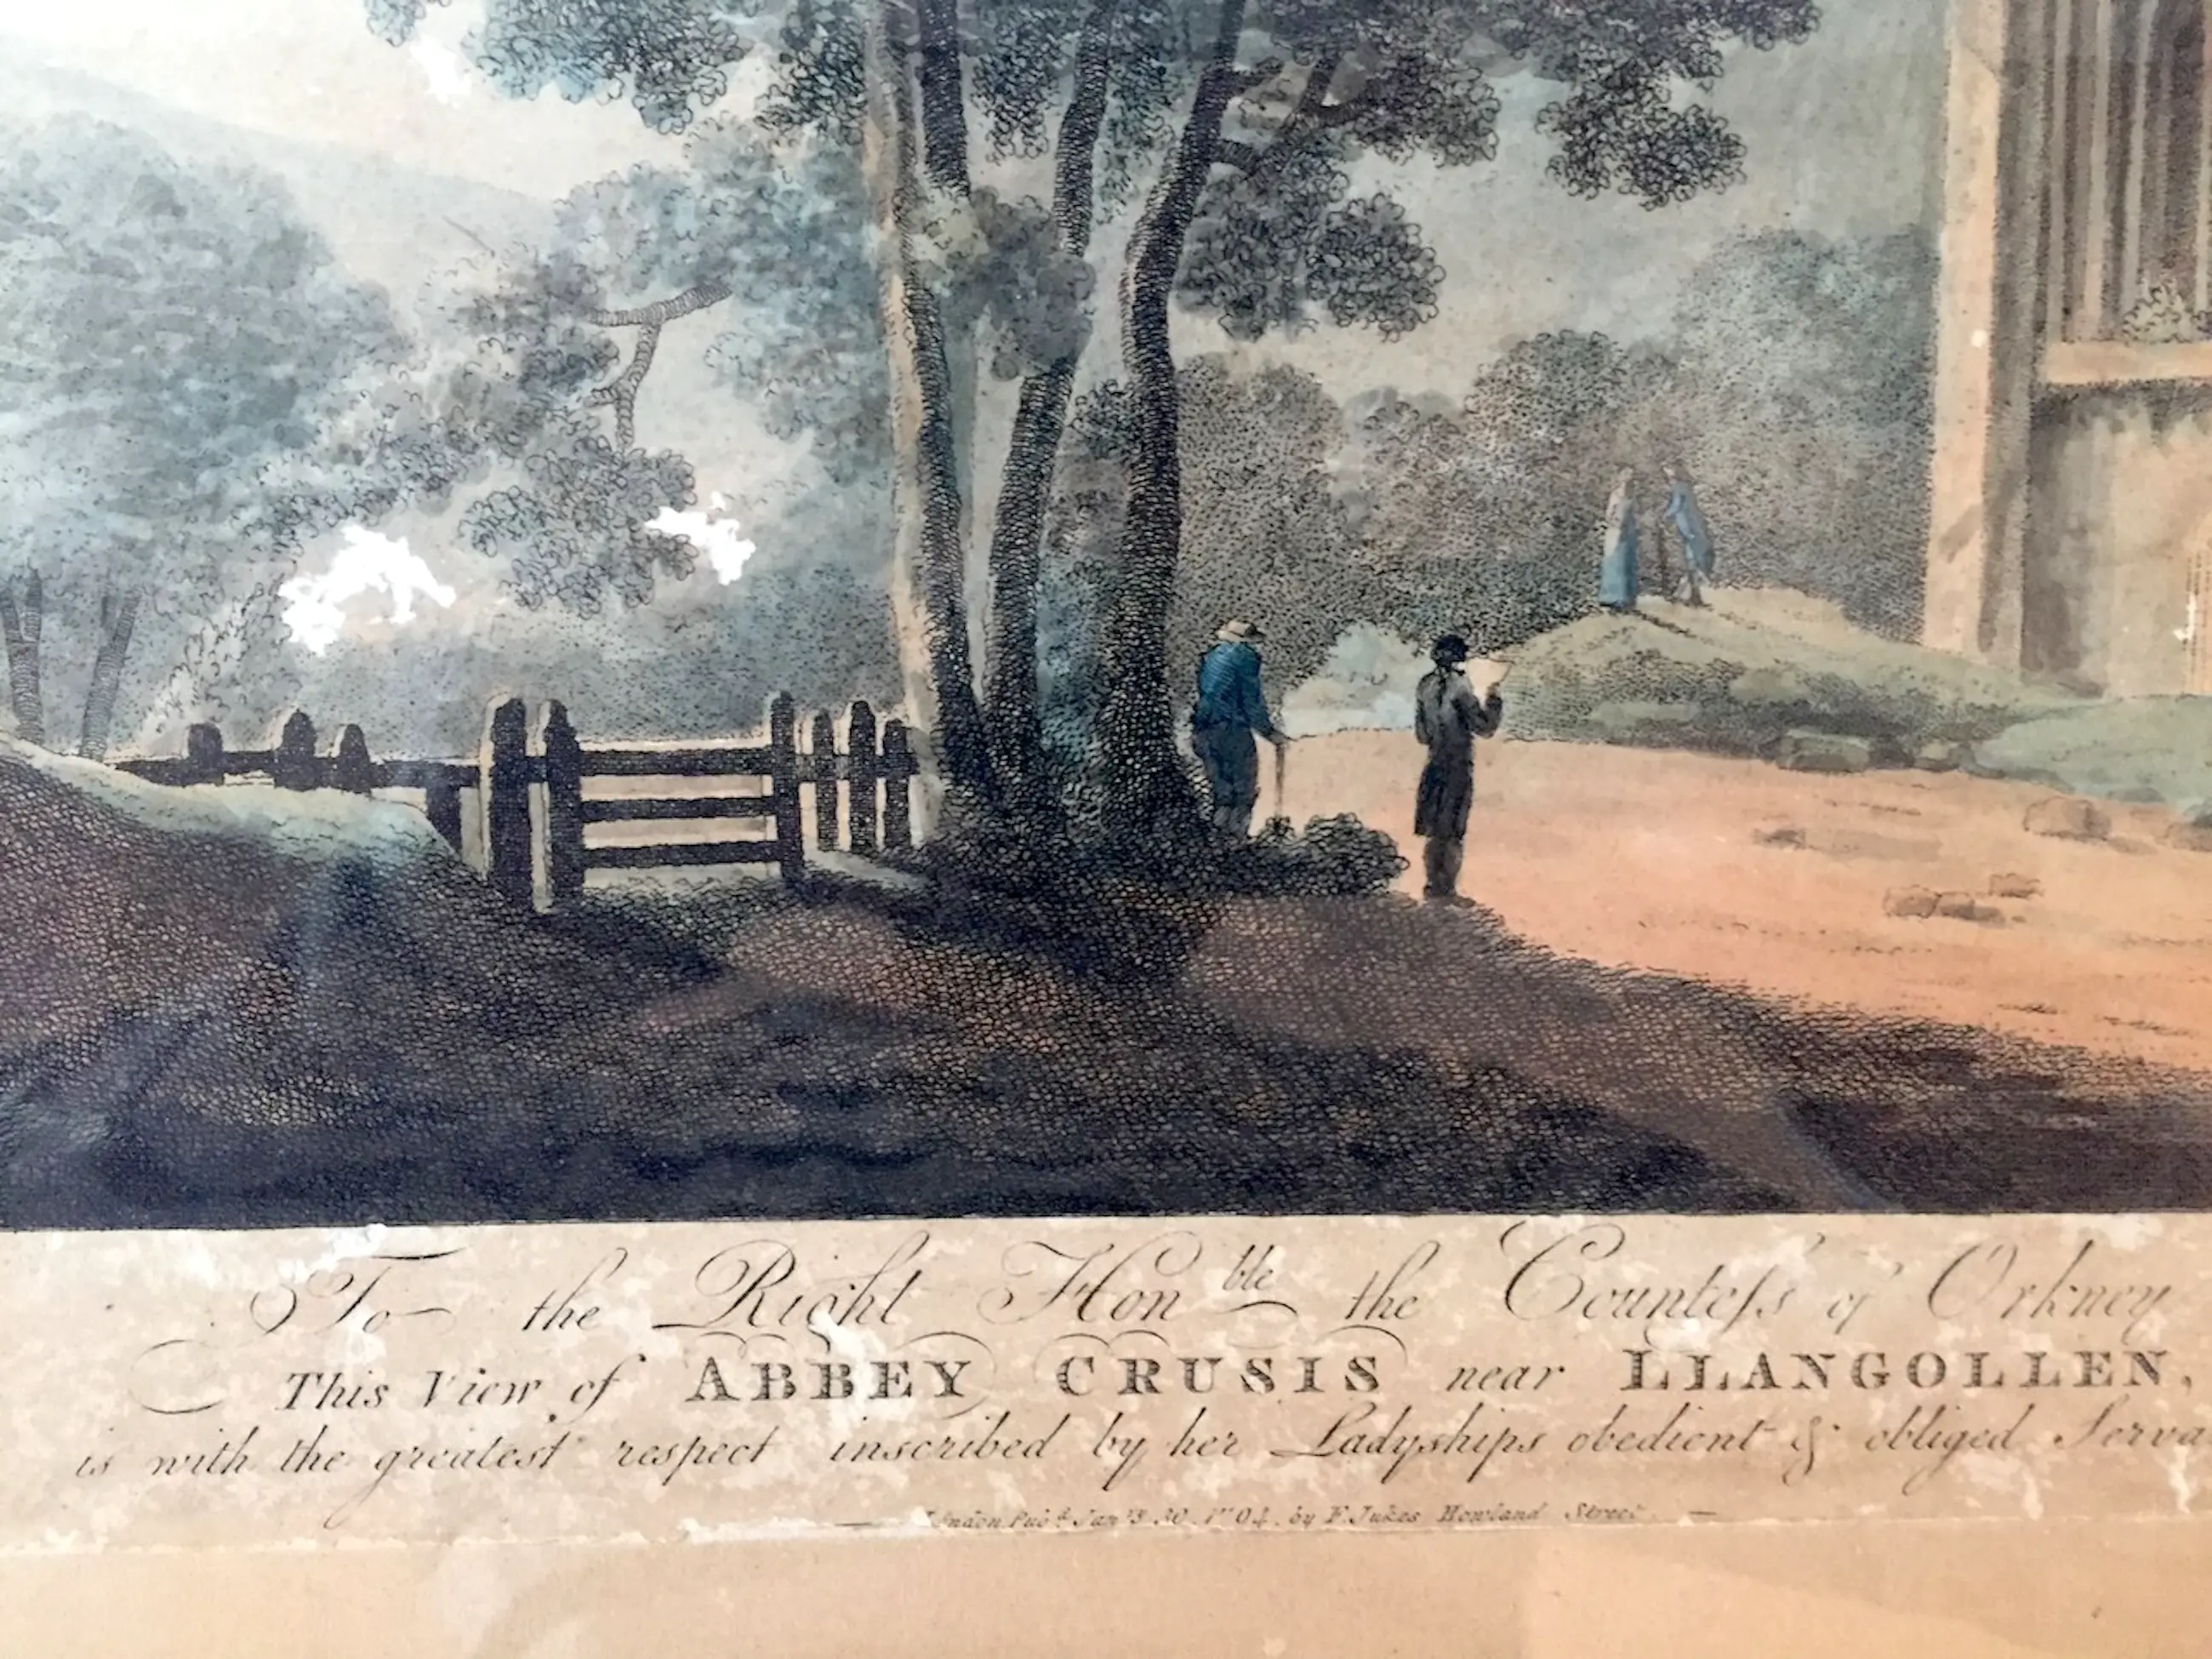 To the Right Hon.ble the Countess of Orkney
This View of ABBEY CRUSIS near LLANGOLLEN,
is with the greatest respect inscribed by her Ladyships obedient & obliged Serva
London Pub.d Jan.y 30. 1794. by F. Jukes Howland Street.